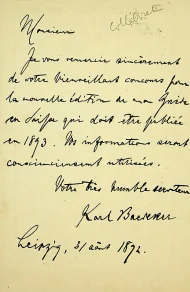 Monsieur
Je vous remercie sincèrement
de votre bienveillant concours pour
la nouvelle édition de mon Guide
en Suisse qui doit être publiée
en 1893. Vos informations seront
consciencieusement utilisées.
Votre très humble serviteur
Karl Baedeker
Leipzig, 31 août 1892.